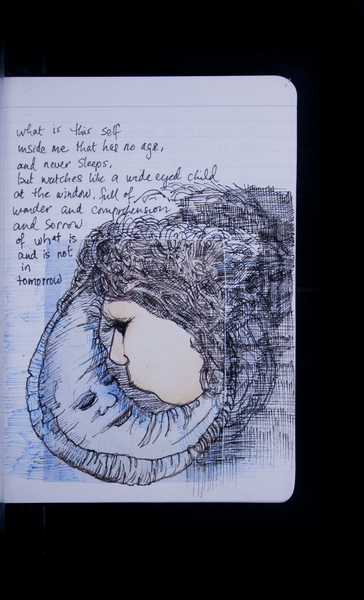 what is this self
inside me that has no age,
and never sleeps,
but watches like a wide eyed child
at the window, full of
wonder and comprehension
and sorrow
of what is
and is not
in
tomorrow